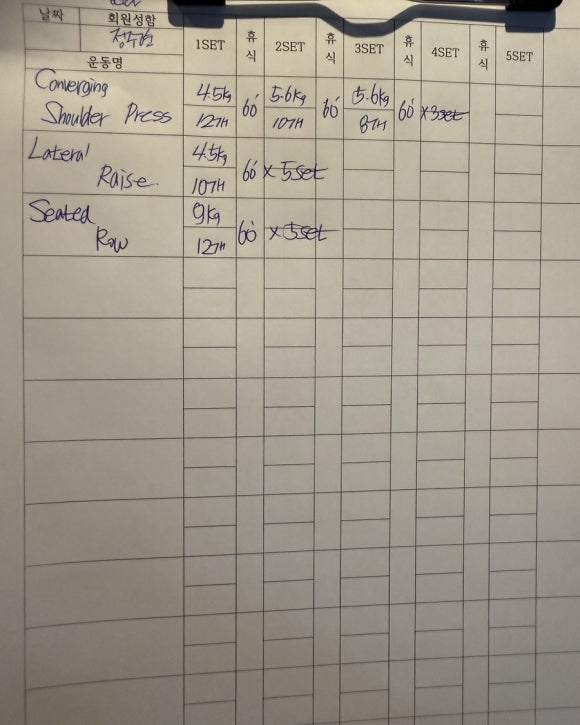 날짜 회원성함
정수연
운동명 1SET 휴식 2SET 휴식 3SET 휴식 4SET 휴식 5SET
Converging Shoulder Press 4.5kg 12개 60' 5.6kg 10개 60' 5.6kg 8개 60' x3set
Lateral Raise. 4.5kg 10개 60' x 5set
Seated Row 9kg 12개 60' x 5set